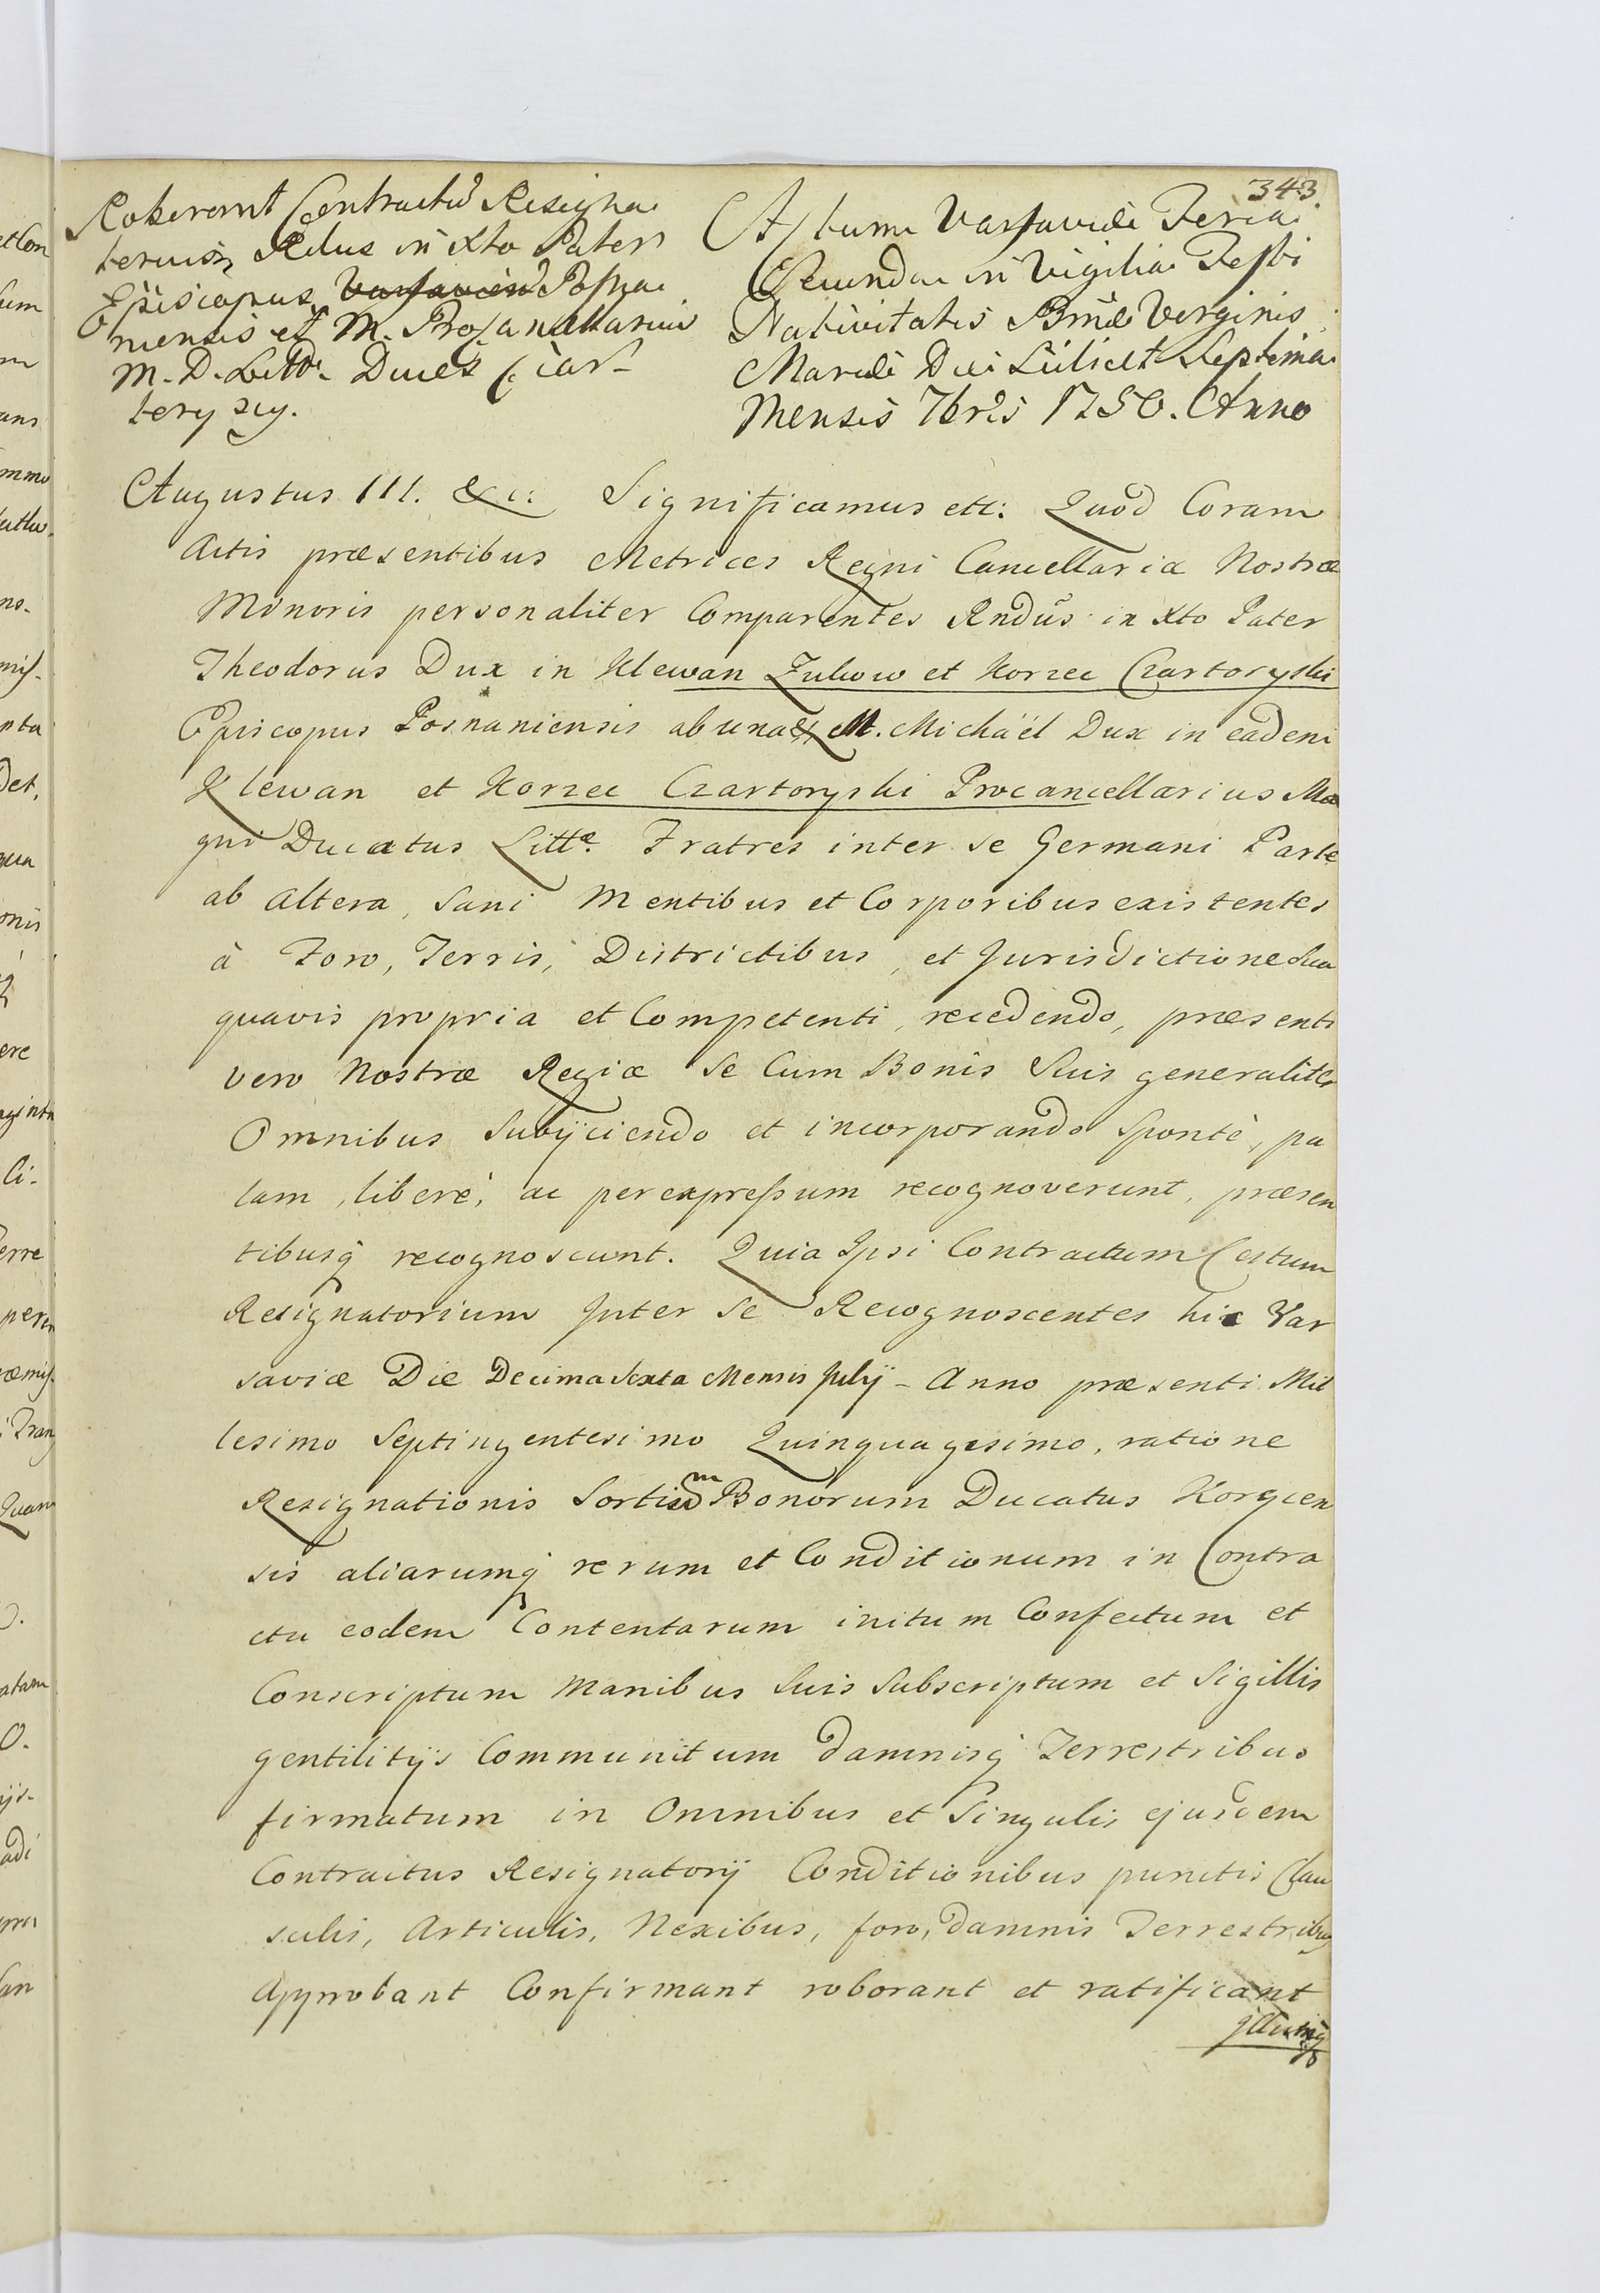 343.
Roberant Contractũ Resigna
Rdus in Xto Pater
Episcopus Varsavien Posna
niensis et M. Procancellarius
M. D. Litt. Duces Czar-
toryscy.
Actum Varsaviæ Feria
Secunda in Vigilia Festi
Nativitatis Bmæ Virginis
Mariæ Die Scilicet Septima
Mensis 7bris 1750. Anno
Augustus III. &c: Significamus etc: Quod Coram
Actis præsentibus Metrices Regni Cancellariæ Nostræ
Minoris personaliter Comparentes Rndũs in Xto Pater
Theodorus Dux in Klewan Zukow et Korzec Czartoryski
Episcopus Posnaniensis ab una & M. Michäel Dux in eadem
Klewan et Korzec Czartoryski Procancellarius Ma
gni Ducatus Littæ. Fratres inter se Germani Parte
ab altera, Sani Mentibus et Corporibus existentes
à Foro, Terris, Districtibus, et Jurisdictione Sua
quavis propria et Competenti, recedendo, præsenti
vero Nostræ Regiæ Se Cum Bonis Suis generaliter
Omnibus Subÿciendo et incorporando Spontè, pa
lam, liberè, ac per expressum recognoverunt, præsen
tibusq̃ recognoscunt. Quia Ipsi Contractum Certum
Resignatorium Inter Se Recognoscentes hic Var
saviæ Die Decima Sexta Mensis Julÿ - Anno præsenti Mil
lesimo Septingentesimo Quinquagesimo, ratione
Resignationis Sortium Bonorum Ducatus Korecen
sis aliarumq̃ rerum et Conditionum in Contra
ctu eodem Contentarum initum Confectum et
Conscriptum Manibus Suis Subscriptum et Sigillis
gentilitÿs Communitum damnisq̃ Terrestribus
firmatum in Omnibus et Singulis ejusdem
Contractus Resignatorÿ Conditionibus punctis Clau
sulis, Articulis, Nexibus, foro, damnis Terrestribus
Approbant Confirmant roborant et ratificant
illumq̃